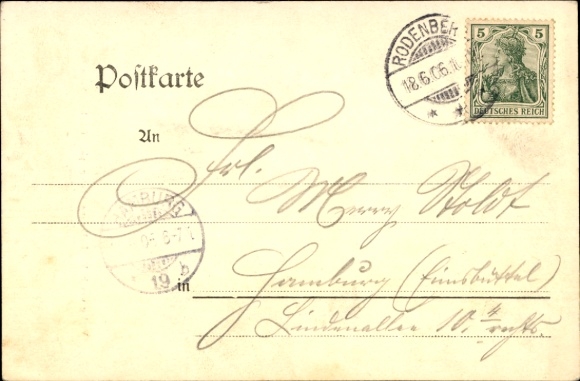 Postkarte
RODENBER
18.6.06.1
5 5
DEUTSCHES REICH
An
Frl.
Merry Stoldt
19 b
in Hamburg (Eimsbüttel)
Lindenallee 10. 4 rechts.